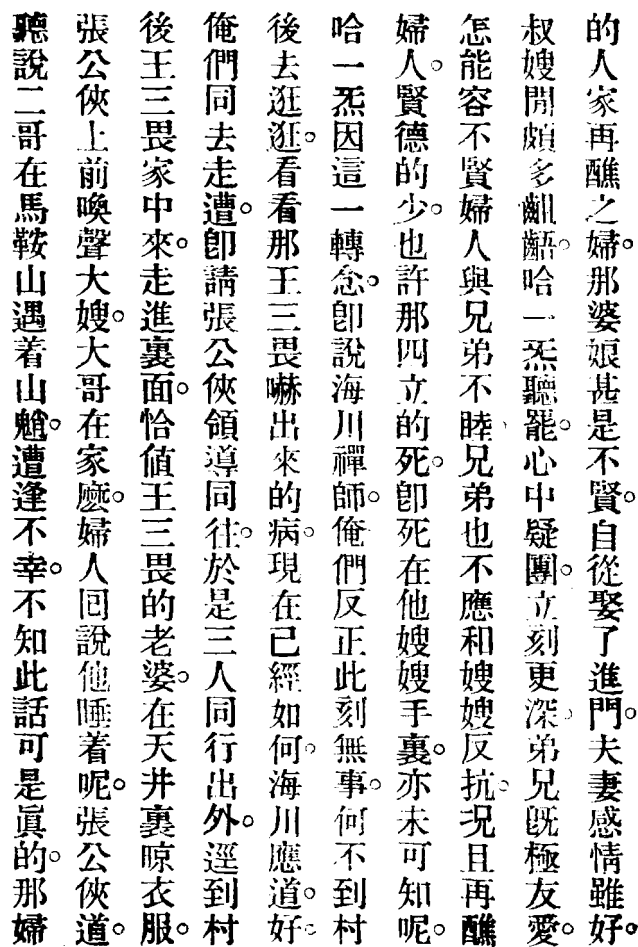 的人家再醮之婦。那婆娘甚是不賢。自從娶了進門。夫妻感情雖好。
叔嫂間頗多齟齬。哈一炁聽罷。心中疑團。立刻更深。弟兄既極友愛。
怎能容不賢婦人與兄弟不睦、兄弟也不應和嫂嫂反抗。况且再醮
婦人。賢德的少。也許那四立的死。卽死在他嫂嫂手裏。亦未可知呢。
哈一炁因這一轉念。卽說海川禪師。俺們反正此刻無事。何不到村
後去逛逛。看看那王三畏嚇出來的病。現在已經如何。海川應道。好。
俺們同去走遭。卽請張公俠領導同往。於是三人同行出外。逕到村
後王三畏家中來。走進裏面。恰値王三畏的老婆。在天井裏晾衣服。
張公俠上前喚聲大嫂。大哥在家麽。婦人囘說他睡着呢。張公俠道。
聽說二哥在馬鞍山遇着山魈。遭逢不幸。不知此話可是眞的。那婦